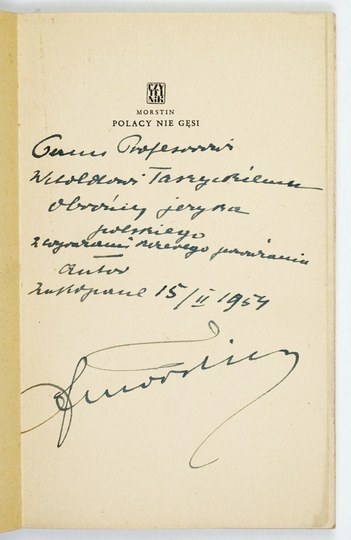 CZY
TEL
NIK
MORSTIN
POLACY NIE GĘSI
Panu Profesorowi
Witoldowi Taszyckiemu
obrońcy języka
polskiego
z wyrazami szczerego poważania
Autor
Zakopane 15/II 1954
LMorstin